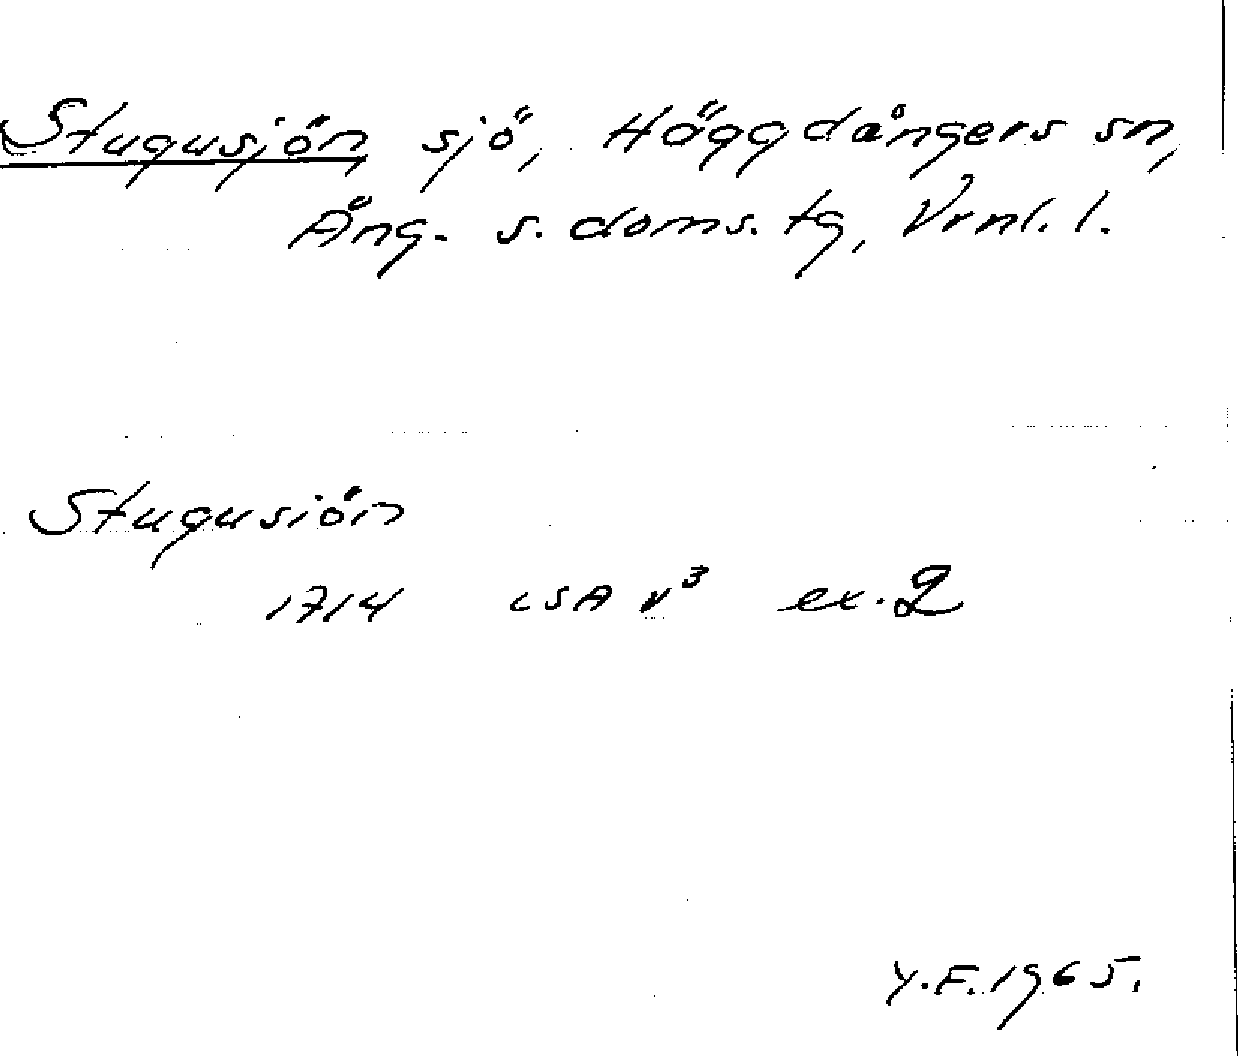 Stugusjön sjö, Häggdångers sn,
Ång. s. doms. tg, Vrnl. l.
Stugusiön
1714 LSA V³ ex. 2
Y.F. 1965.